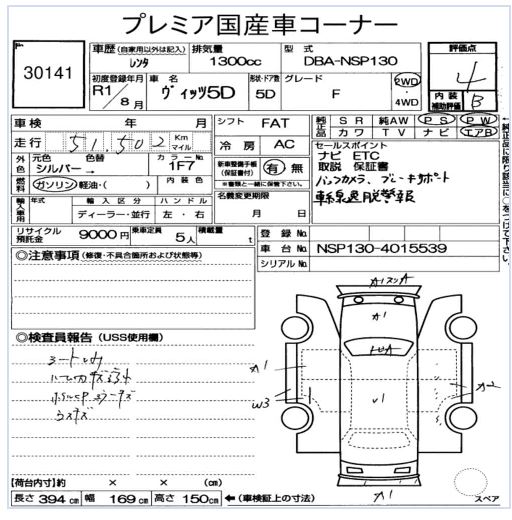 プレミア国産車コーナー
30141
車歴 (自家用以外は記入) レンタ
排気量 1300cc
型式 DBA-NSP130
評価点 4
初度登録年月 R1/8月
車名 ヴィッツ5D
形状・ドア数 5D
グレード F
2WD・4WD
内装補助評価 B
車検 年 月
シフト FAT
純正品 SR 純AW PS PW
カワ TV ナビ エアB
走行 51,502 Km マイル
冷房 AC
外色 元色 シルバー→ 色替 カラーNo. 1F7
新車整備手帳(保証書付) 有・無
※書類と一緒に保管して下さい。
セールスポイント
ナビ ETC
取説 保証書
バックカメラ、ブレーキサポート
車線逸脱警報
燃料 ガソリン 軽油・( ) 内装色
輸入車用 年式 輸入区分 ハンドル
ディーラー・並行 左・右
名義変更期限 月 日
リサイクル預託金 9000円
乗車定員 5人
積載量 t
登録No.
車台No. NSP130-4015539
シリアルNo.
◎注意事項 (修復・不具合個所および状態等)
◎検査員報告 (USS使用欄)
A1
A1
A1
W3
A2
A1
【荷台内寸】約 × × (cm)
長さ 394 cm 幅 169 cm 高さ 150 cm ←(車検証上の寸法)
スペア